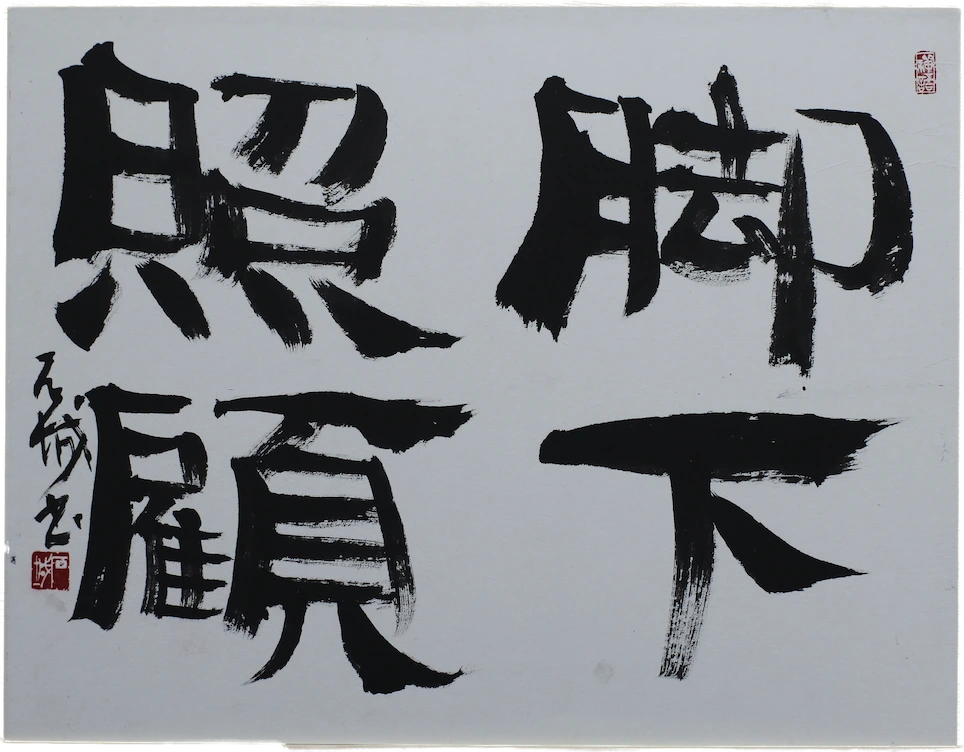 脚下
照顧
石城书